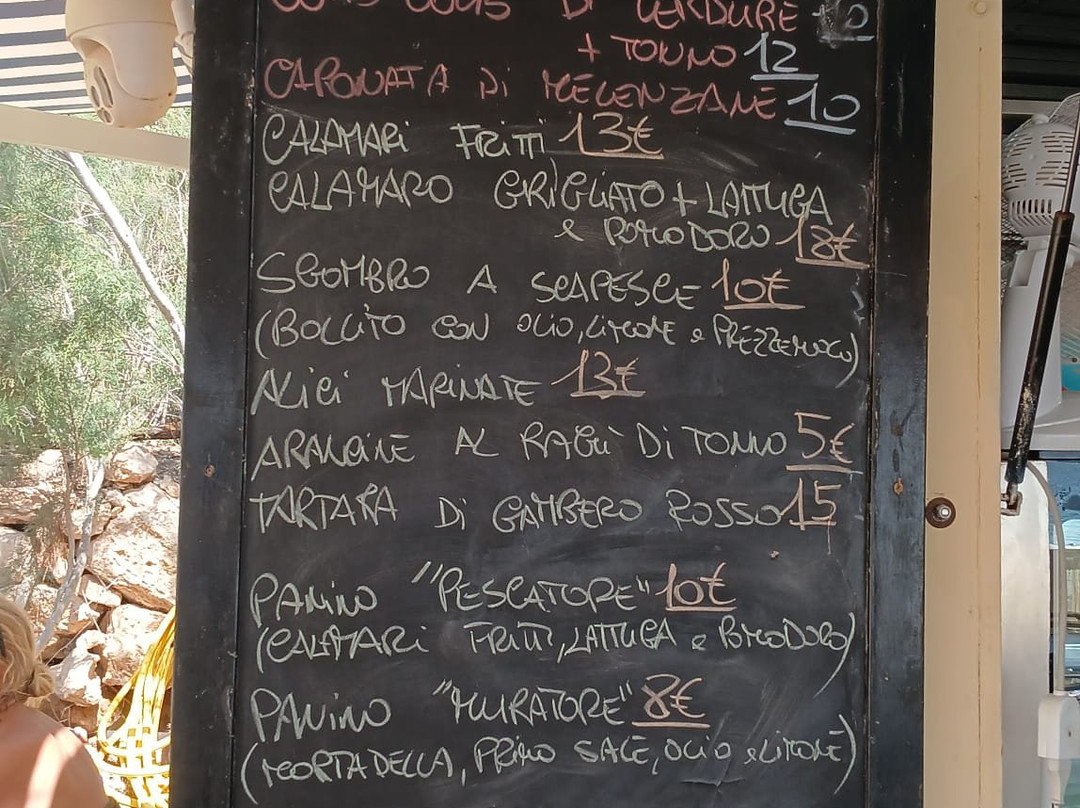 COUS COUS DI VERDURE
+ TONNO 12
CAPONATA Di MELENZANE 10
CALAMARi FRiTTi 13€
CALAMARO GRiGLiATO + LATTUGA
& POMODORO 18€
SGOMBRO A SCAPESCE 10€
(BOLLiTO CON OLIO, LIMONE & PREZZEMOLO)
ALICI MARINATE 13€
ARANCINE AL RAGÙ Di TONNO 5€
TARTARA Di GAMBERO ROSSO 15
PANINO "PESCATORE" 10€
(CALAMARi FRITTI, LATTUGA & POMODORO)
PANINO "MURATORE" 8€
(MORTADELLA, PRIMO SALE, OLIO & LIMONE)